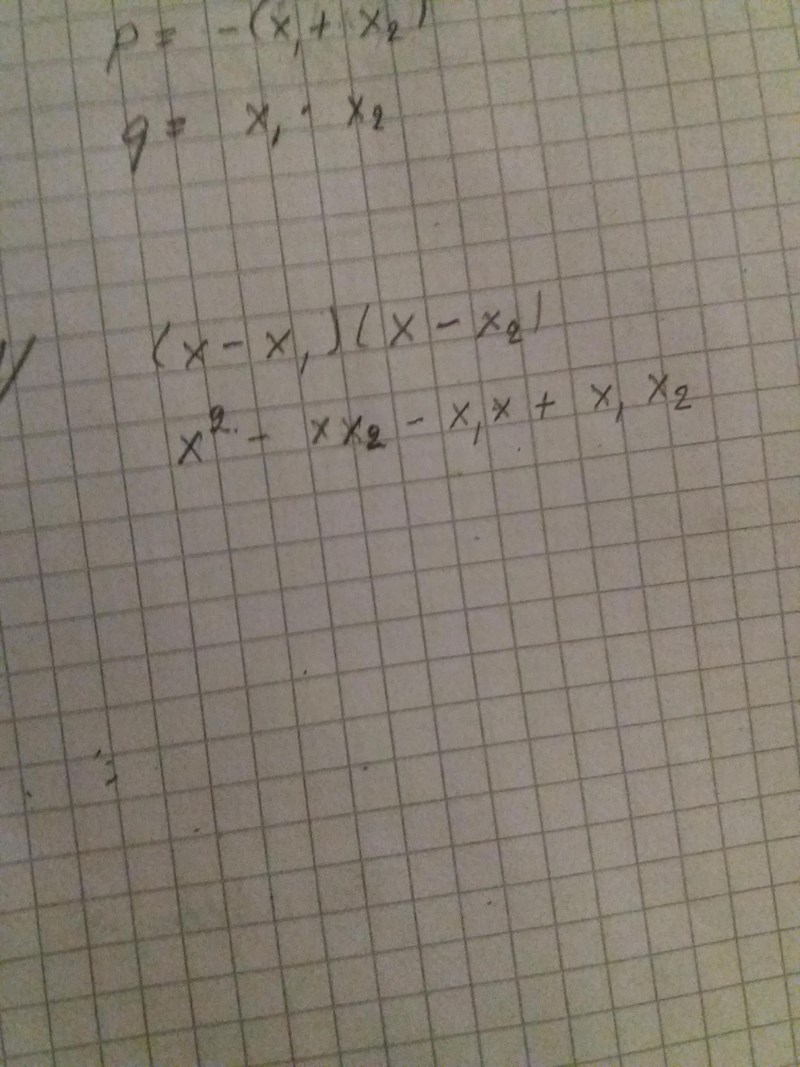 p = -(x₁ + x₂)
q = x₁ · x₂
(x - x₁)(x - x₂)
x² - xx₂ - x₁x + x₁x₂